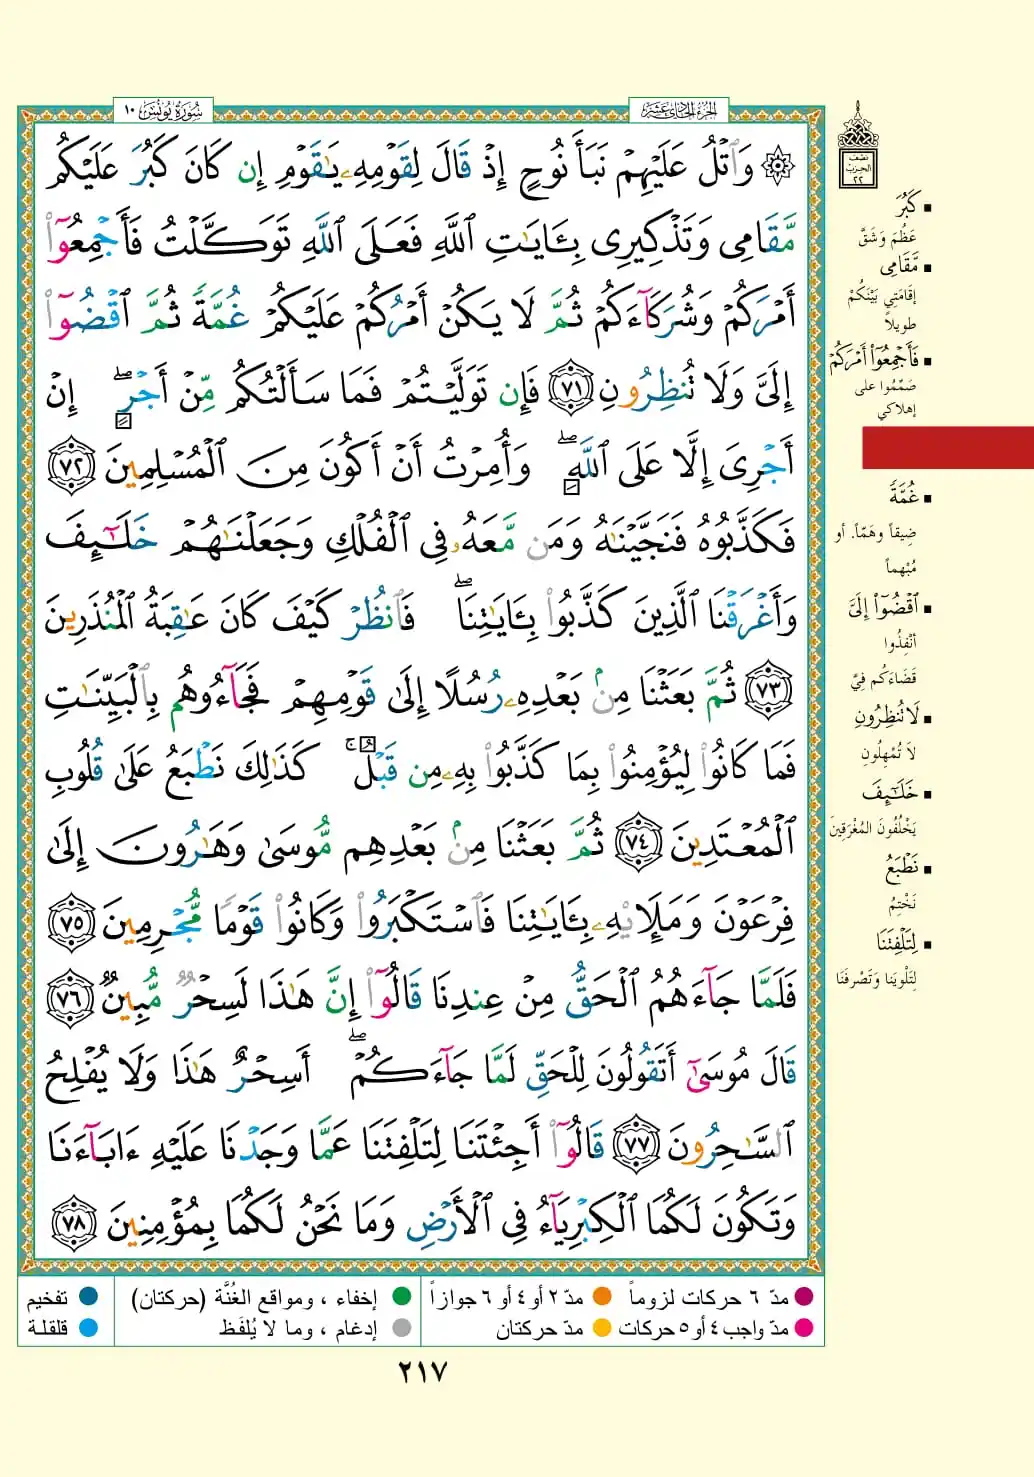 سُورَةُ يُونُسَ ١٠
الجزء الحادي عشر
۞ وَٱتْلُ عَلَيْهِمْ نَبَأَ نُوحٍ إِذْ قَالَ لِقَوْمِهِۦ يَٰقَوْمِ إِن كَانَ كَبُرَ عَلَيْكُم
مَّقَامِى وَتَذْكِيرِى بِـَٔايَٰتِ ٱللَّهِ فَعَلَى ٱللَّهِ تَوَكَّلْتُ فَأَجْمِعُوٓا۟
أَمْرَكُمْ وَشُرَكَآءَكُمْ ثُمَّ لَا يَكُنْ أَمْرُكُمْ عَلَيْكُمْ غُمَّةً ثُمَّ ٱقْضُوٓا۟
إِلَىَّ وَلَا تُنظِرُونِ ٧١ فَإِن تَوَلَّيْتُمْ فَمَا سَأَلْتُكُم مِّنْ أَجْرٍ ۖ إِنْ
أَجْرِىَ إِلَّا عَلَى ٱللَّهِ ۖ وَأُمِرْتُ أَنْ أَكُونَ مِنَ ٱلْمُسْلِمِينَ ٧٢
فَكَذَّبُوهُ فَنَجَّيْنَٰهُ وَمَن مَّعَهُۥ فِى ٱلْفُلْكِ وَجَعَلْنَٰهُمْ خَلَٰٓئِفَ
وَأَغْرَقْنَا ٱلَّذِينَ كَذَّبُوا۟ بِـَٔايَٰتِنَا ۖ فَٱنظُرْ كَيْفَ كَانَ عَٰقِبَةُ ٱلْمُنذَرِينَ
٧٣ ثُمَّ بَعَثْنَا مِنۢ بَعْدِهِۦ رُسُلًا إِلَىٰ قَوْمِهِمْ فَجَآءُوهُم بِٱلْبَيِّنَٰتِ
فَمَا كَانُوا۟ لِيُؤْمِنُوا۟ بِمَا كَذَّبُوا۟ بِهِۦ مِن قَبْلُ ۚ كَذَٰلِكَ نَطْبَعُ عَلَىٰ قُلُوبِ
ٱلْمُعْتَدِينَ ٧٤ ثُمَّ بَعَثْنَا مِنۢ بَعْدِهِم مُّوسَىٰ وَهَٰرُونَ إِلَىٰ
فِرْعَوْنَ وَمَلَإِي۟هِۦ بِـَٔايَٰتِنَا فَٱسْتَكْبَرُوا۟ وَكَانُوا۟ قَوْمًا مُّجْرِمِينَ ٧٥
فَلَمَّا جَآءَهُمُ ٱلْحَقُّ مِنْ عِندِنَا قَالُوٓا۟ إِنَّ هَٰذَا لَسِحْرٌ مُّبِينٌ ٧٦
قَالَ مُوسَىٰٓ أَتَقُولُونَ لِلْحَقِّ لَمَّا جَآءَكُمْ ۖ أَسِحْرٌ هَٰذَا وَلَا يُفْلِحُ
ٱلسَّٰحِرُونَ ٧٧ قَالُوٓا۟ أَجِئْتَنَا لِتَلْفِتَنَا عَمَّا وَجَدْنَا عَلَيْهِ ءَابَآءَنَا
وَتَكُونَ لَكُمَا ٱلْكِبْرِيَآءُ فِى ٱلْأَرْضِ وَمَا نَحْنُ لَكُمَا بِمُؤْمِنِينَ ٧٨
نصف
الحزب
٢٢
▪ كَبُرَ
عَظُمَ وَشَقَّ
▪ مَّقَامِى
إقَامَتِي بَيْنَكُمْ
طويلاً
▪ فَأَجْمِعُوٓا۟ أَمْرَكُمْ
صَمِّمُوا على
إهلاكي
▪ غُمَّةً
ضِيقاً وهَمّاً. أو
مُبْهماً
▪ ٱقْضُوٓا۟ إِلَىَّ
أنْفِذُوا
قَضَاءَكُم فِيَّ
▪ لَا تُنظِرُونِ
لاَ تُمْهِلُونِ
▪ خَلَٰٓئِفَ
يَخْلُفُونَ المُغْرَقِينَ
▪ نَطْبَعُ
نَخْتِمُ
▪ لِتَلْفِتَنَا
لِتَلْوِيَنا وَتَصْرِفَنَا
مدّ ٦ حركات لزوماً ● مدّ ٢ أو ٤ أو ٦ جوازاً ● إخفاء ، ومواقع الغُنَّة (حركتان) ● تفخيم
مدّ واجب ٤ أو ٥ حركات ● مدّ حركتان ● إدغام ، وما لا يُلفَظ ● قلقلة
٢١٧